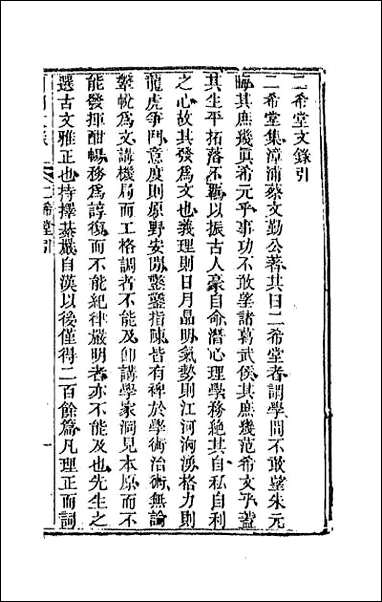 二希堂文錄引
二希堂集漳浦蔡文勤公著其曰二希堂者謂學問不敢望朱元
晦其庶幾真希元乎事功不敢望諸葛武侯其庶幾范希文乎蓋
其生平拓落不羈以振古人豪自命潛心理學務絕其自私自利
之心故其發為文也義理則日月晶明氣勢則江河洶湧格力則
龍虎爭鬥意度則原野安閒鑿鑿指陳皆有裨於學術治術無論
鞶帨為文講機局而工格調者不能及卽講學家洞見本原而不
能發揮酣暢務為諄復而不能紀律嚴明者亦不能及也先生之
選古文雅正也持擇綦嚴自漢以後僅得二百餘篇凡理正而詞
二希堂引
一